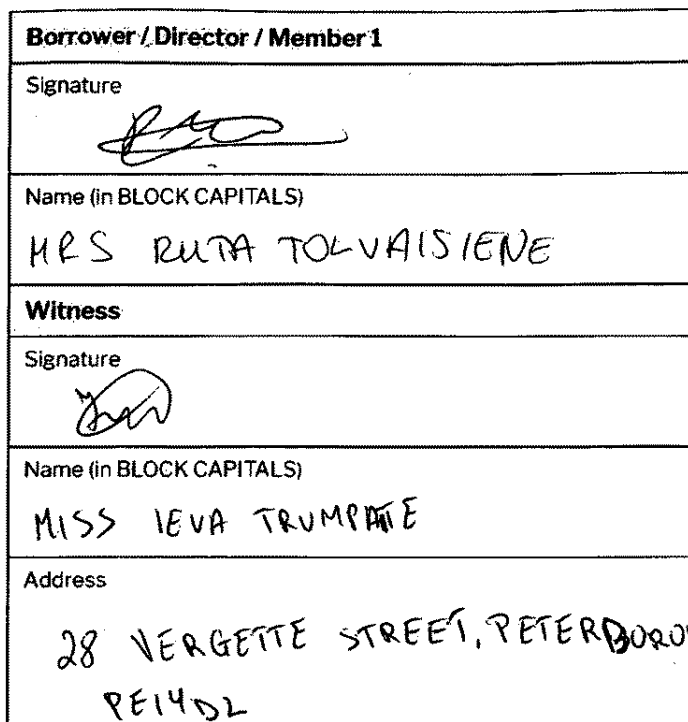 Borrower / Director / Member 1
Signature
Name (in BLOCK CAPITALS)
MRS RUTA TOLVAISIENE
Witness
Signature
Name (in BLOCK CAPITALS)
MISS IEVA
Address
28 VERGETTE STREET, PETERBOROU
PE14DL